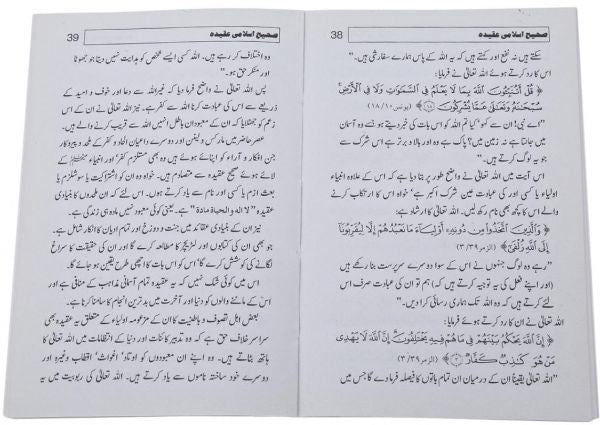 38 صحیح اسلامی عقیدہ
سکتے ہیں نہ نفع اور کہتے ہیں کہ یہ اللہ کے پاس ہمارے سفارشی ہیں۔"
اس کا رد کرتے ہوئے اللہ تعالیٰ نے فرمایا:
﴿ قُلْ أَتُنَبِّئُونَ اللَّهَ بِمَا لَا يَعْلَمُ فِي السَّمَاوَاتِ وَلَا فِي الْأَرْضِ
سُبْحَانَهُ وَتَعَالَىٰ عَمَّا يُشْرِكُونَ ﴾ (یونس ۱۸/۱۰)
"اے نبی! ان سے کہو" کیا تم اللہ کو اس بات کی خبر دیتے ہو جسے وہ آسمان
میں جانتا ہے نہ زمین میں؟ پاک ہے وہ اور بالا و برتر ہے اس شرک سے
جو یہ لوگ کرتے ہیں۔"
اس آیت میں اللہ تعالیٰ نے واضح طور پر بتا دیا ہے کہ اس کے علاوہ انبیاء
اولیاء یا کسی اور کی عبادت عین شرک اکبر ہے' خواہ اس کا ارتکاب کرنے
والے اس کا کچھ بھی نام رکھ لیں۔ اللہ تعالیٰ کا ارشاد ہے:
﴿ وَالَّذِينَ اتَّخَذُوا مِن دُونِهِ أَوْلِيَاءَ مَا نَعْبُدُهُمْ إِلَّا لِيُقَرِّبُونَا
إِلَى اللَّهِ زُلْفَىٰ ﴾ (الزمر ۳/۳۹)
"رہے وہ لوگ جنہوں نے اس کے سوا دوسرے سرپرست بنا رکھے ہیں
(اور اپنے فعل کی یہ توجیہ کرتے ہیں کہ) ہم تو ان کی عبادت صرف اس
لئے کرتے ہیں کہ وہ اللہ تک ہماری رسائی کرا دیں۔"
اللہ تعالیٰ نے ان کا رد کرتے ہوئے فرمایا:
﴿ إِنَّ اللَّهَ يَحْكُمُ بَيْنَهُمْ فِي مَا هُمْ فِيهِ يَخْتَلِفُونَ إِنَّ اللَّهَ لَا يَهْدِي
مَنْ هُوَ كَاذِبٌ كَفَّارٌ ﴾ (الزمر ۳/۳۹)
"اللہ تعالیٰ یقیناً ان کے درمیان ان تمام باتوں کا فیصلہ فرما دے گا جس میں
39 صحیح اسلامی عقیدہ
وہ اختلاف کر رہے ہیں۔ اللہ کسی ایسے شخص کو ہدایت نہیں دیتا جو جھوٹا
اور منکر حق ہو۔"
پس اللہ تعالیٰ نے واضح فرما دیا کہ غیر اللہ سے دعا اور خوف و امید کے
ذریعے سے اس کی عبادت کرنا اللہ سے کفر ہے۔ نیز اللہ تعالیٰ نے ان کے اس
زعم کو جھٹلایا کہ ان کے معبودان باطل انہیں اللہ سے قریب کرنے والے ہیں۔
عصر حاضر میں مارکس و لینن اور دوسرے داعیان الحاد و کفر کے ملحد و پیروکار
جن افکار و آراء کو اپنائے ہوئے ہیں وہ بھی مستلزم کفر اور انبیاء کے
لائے ہوئے صحیح عقیدہ سے متصادم ہیں۔ خواہ وہ ان کو اشتراکیت یا سوشلزم یا
بعث ازم یا کسی اور نام سے یاد کرتے ہوں۔ اس لئے کہ ان ملحدوں کا بنیادی
عقیدہ "لا الہ والحیاة مادة" ہے۔ یعنی کوئی معبود نہیں مادہ ہی زندگی ہے۔
نیز ان کے بنیادی عقائد میں جنت و دوزخ اور تمام ادیان کا انکار شامل ہے۔
جو بھی ان کی کتابوں اور لٹریچر کا مطالعہ کرے گا اور ان کی حقیقت کا سراغ
لگانے کی کوشش کرے گا' اس کو اس بات کا اچھی طرح یقین ہو جائے گا۔
اس میں کوئی شک نہیں کہ یہ عقیدہ تمام آسمانی مذاہب کے منافی ہے اور
اس کے ماننے والوں کو دنیا اور آخرت میں بدترین انجام کا سامنا کرنا ہے۔
بعض اہل تصوف و باطنیت کا ان کے مزعومہ اولیاء کے متعلق یہ عقیدہ بھی
سراسر خلاف حق ہے کہ وہ تدبیر کائنات اور دنیا کے انتظامات میں اللہ تعالیٰ کا
ہاتھ بٹاتے ہیں۔ وہ اپنے ان معبودوں کو اوتاد' اغواث' اقطاب وغیرہ اور
دوسرے خود ساختہ ناموں سے یاد کرتے ہیں۔ اللہ تعالیٰ کی ربوبیت میں یہ